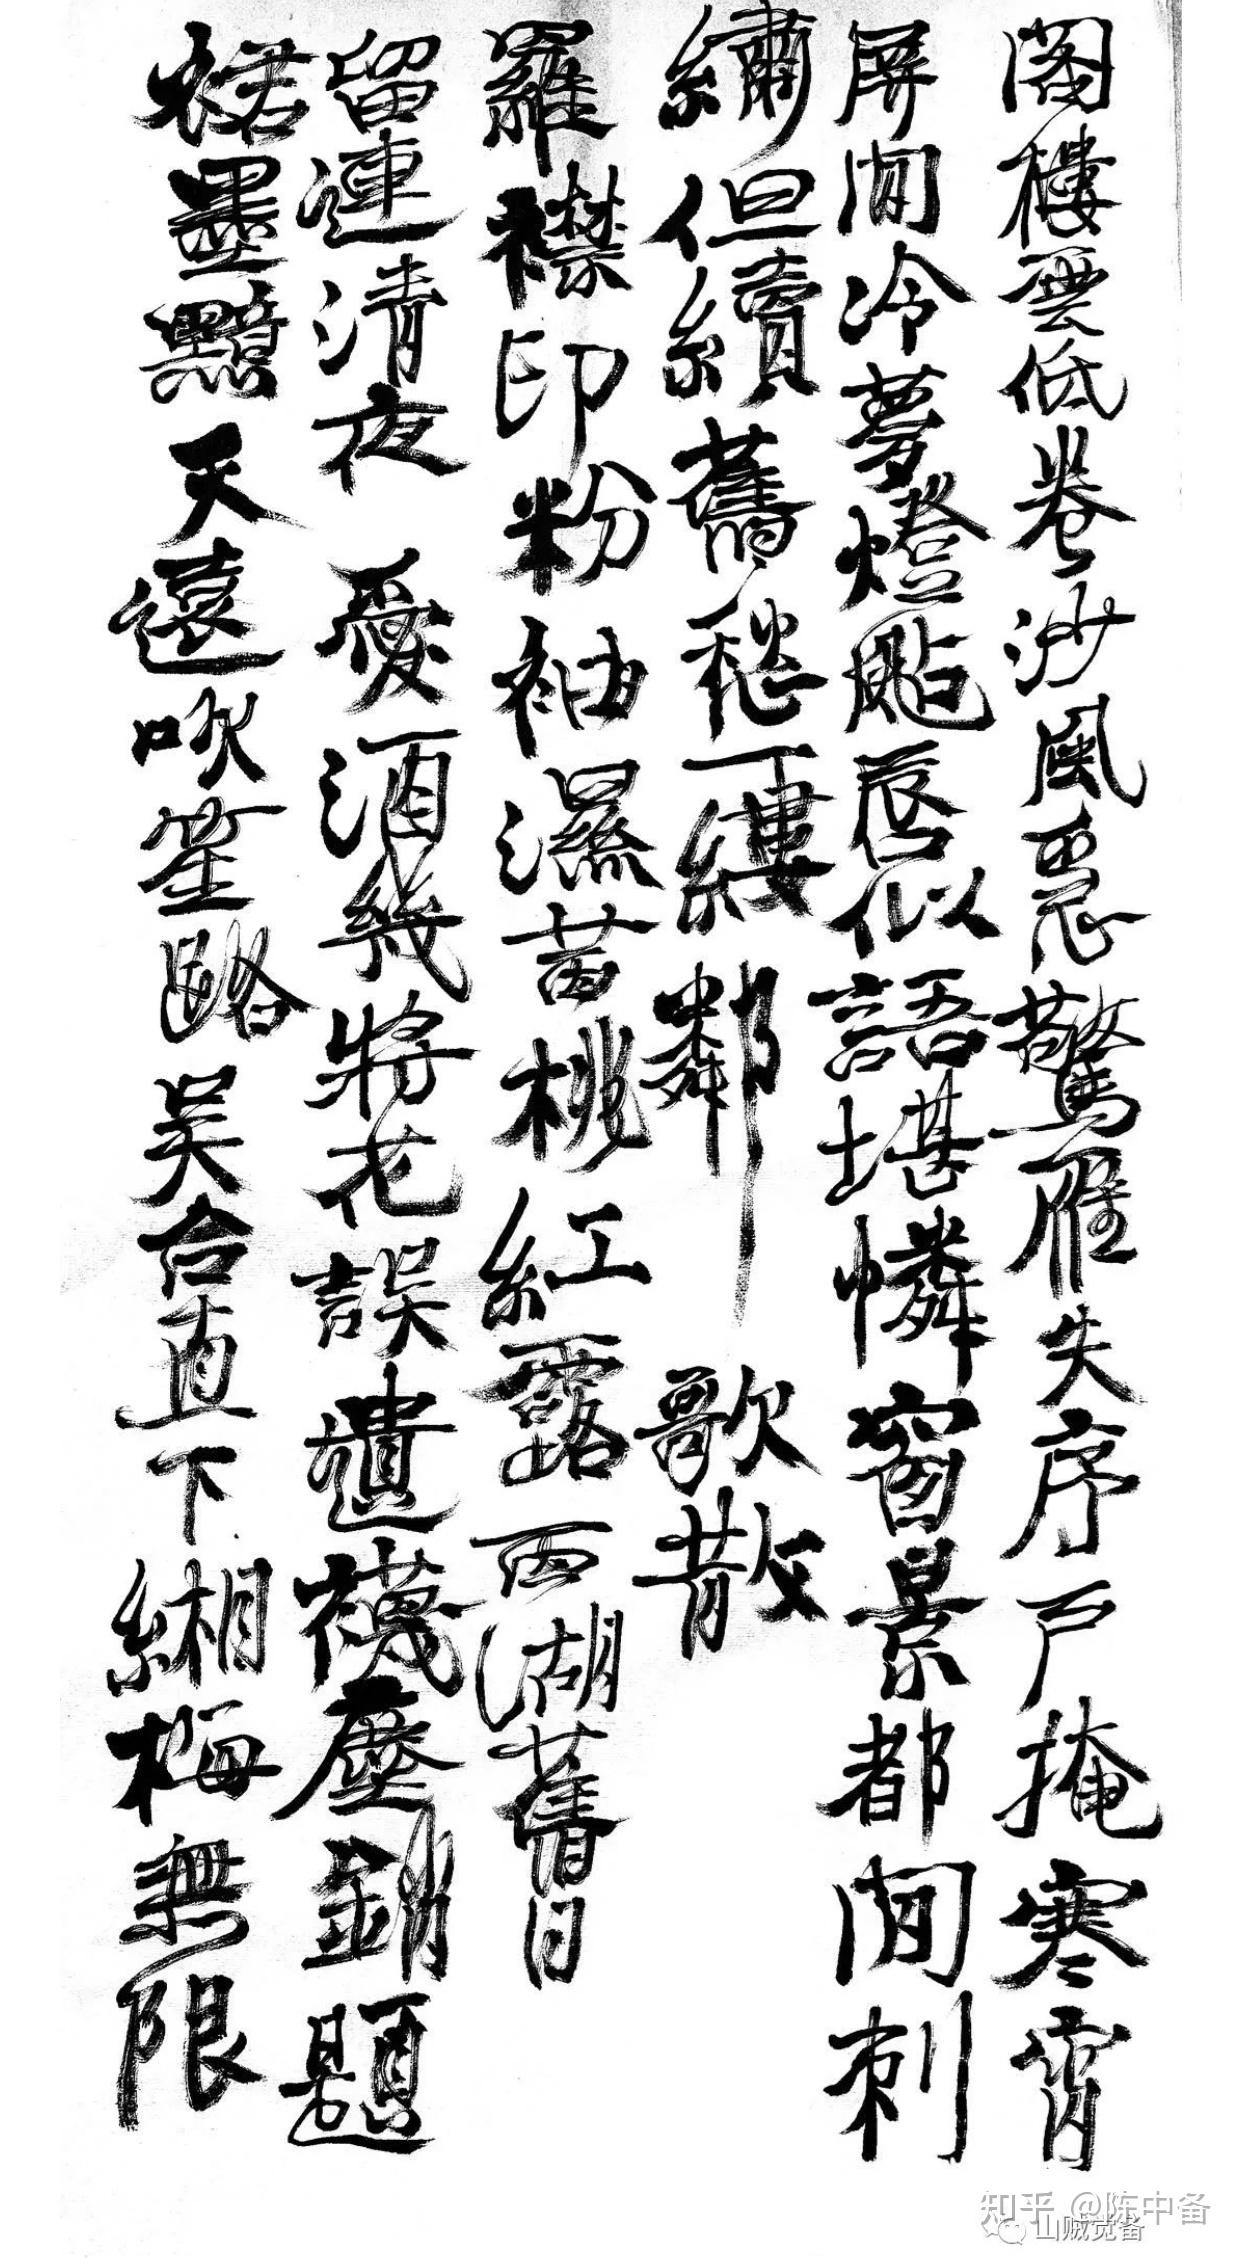 閣樓雲低卷沙風惡驚雁失序戶掩寒宵
屏閒冷夢燈颭唇似語堪憐窗景都閒刺
繡但續舊愁一縷鄰歌散
羅襟印粉袖濕茜桃紅露西湖舊日
留連清夜愛酒幾將花誤遺襪塵銷題
裙墨黯天遠吹笙路吳台直下緗梅無限
知乎 @陈中备
山贼觉备